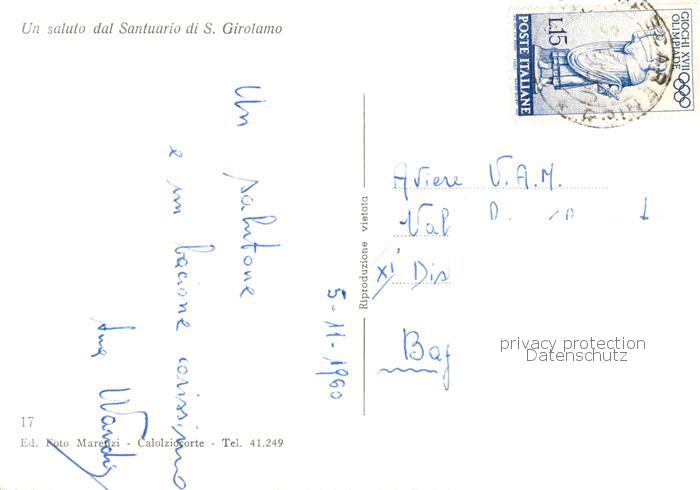 Un saluto dal Santuario di S. Girolamo
Un salutone
e un bacione carissimo
5-11-1960
Riproduzione vietata
GIOCHI XVII
OLIMPIADE
L.15
POSTE ITALIANE
Aviere V.A.M.
Val
XI Dis
Bag
privacy protection
Datenschutz
17
Ed. Foto Marenzi - Calolziocorte - Tel. 41.249